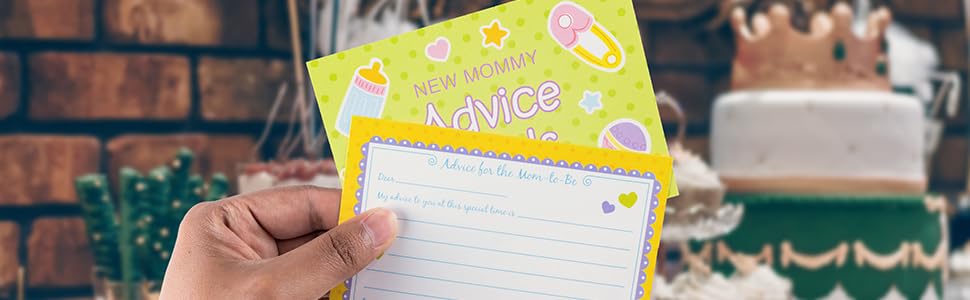 NEW MOMMY
Advice
Advice for the Mom-to-Be
Dear
My advice to you at this special time is